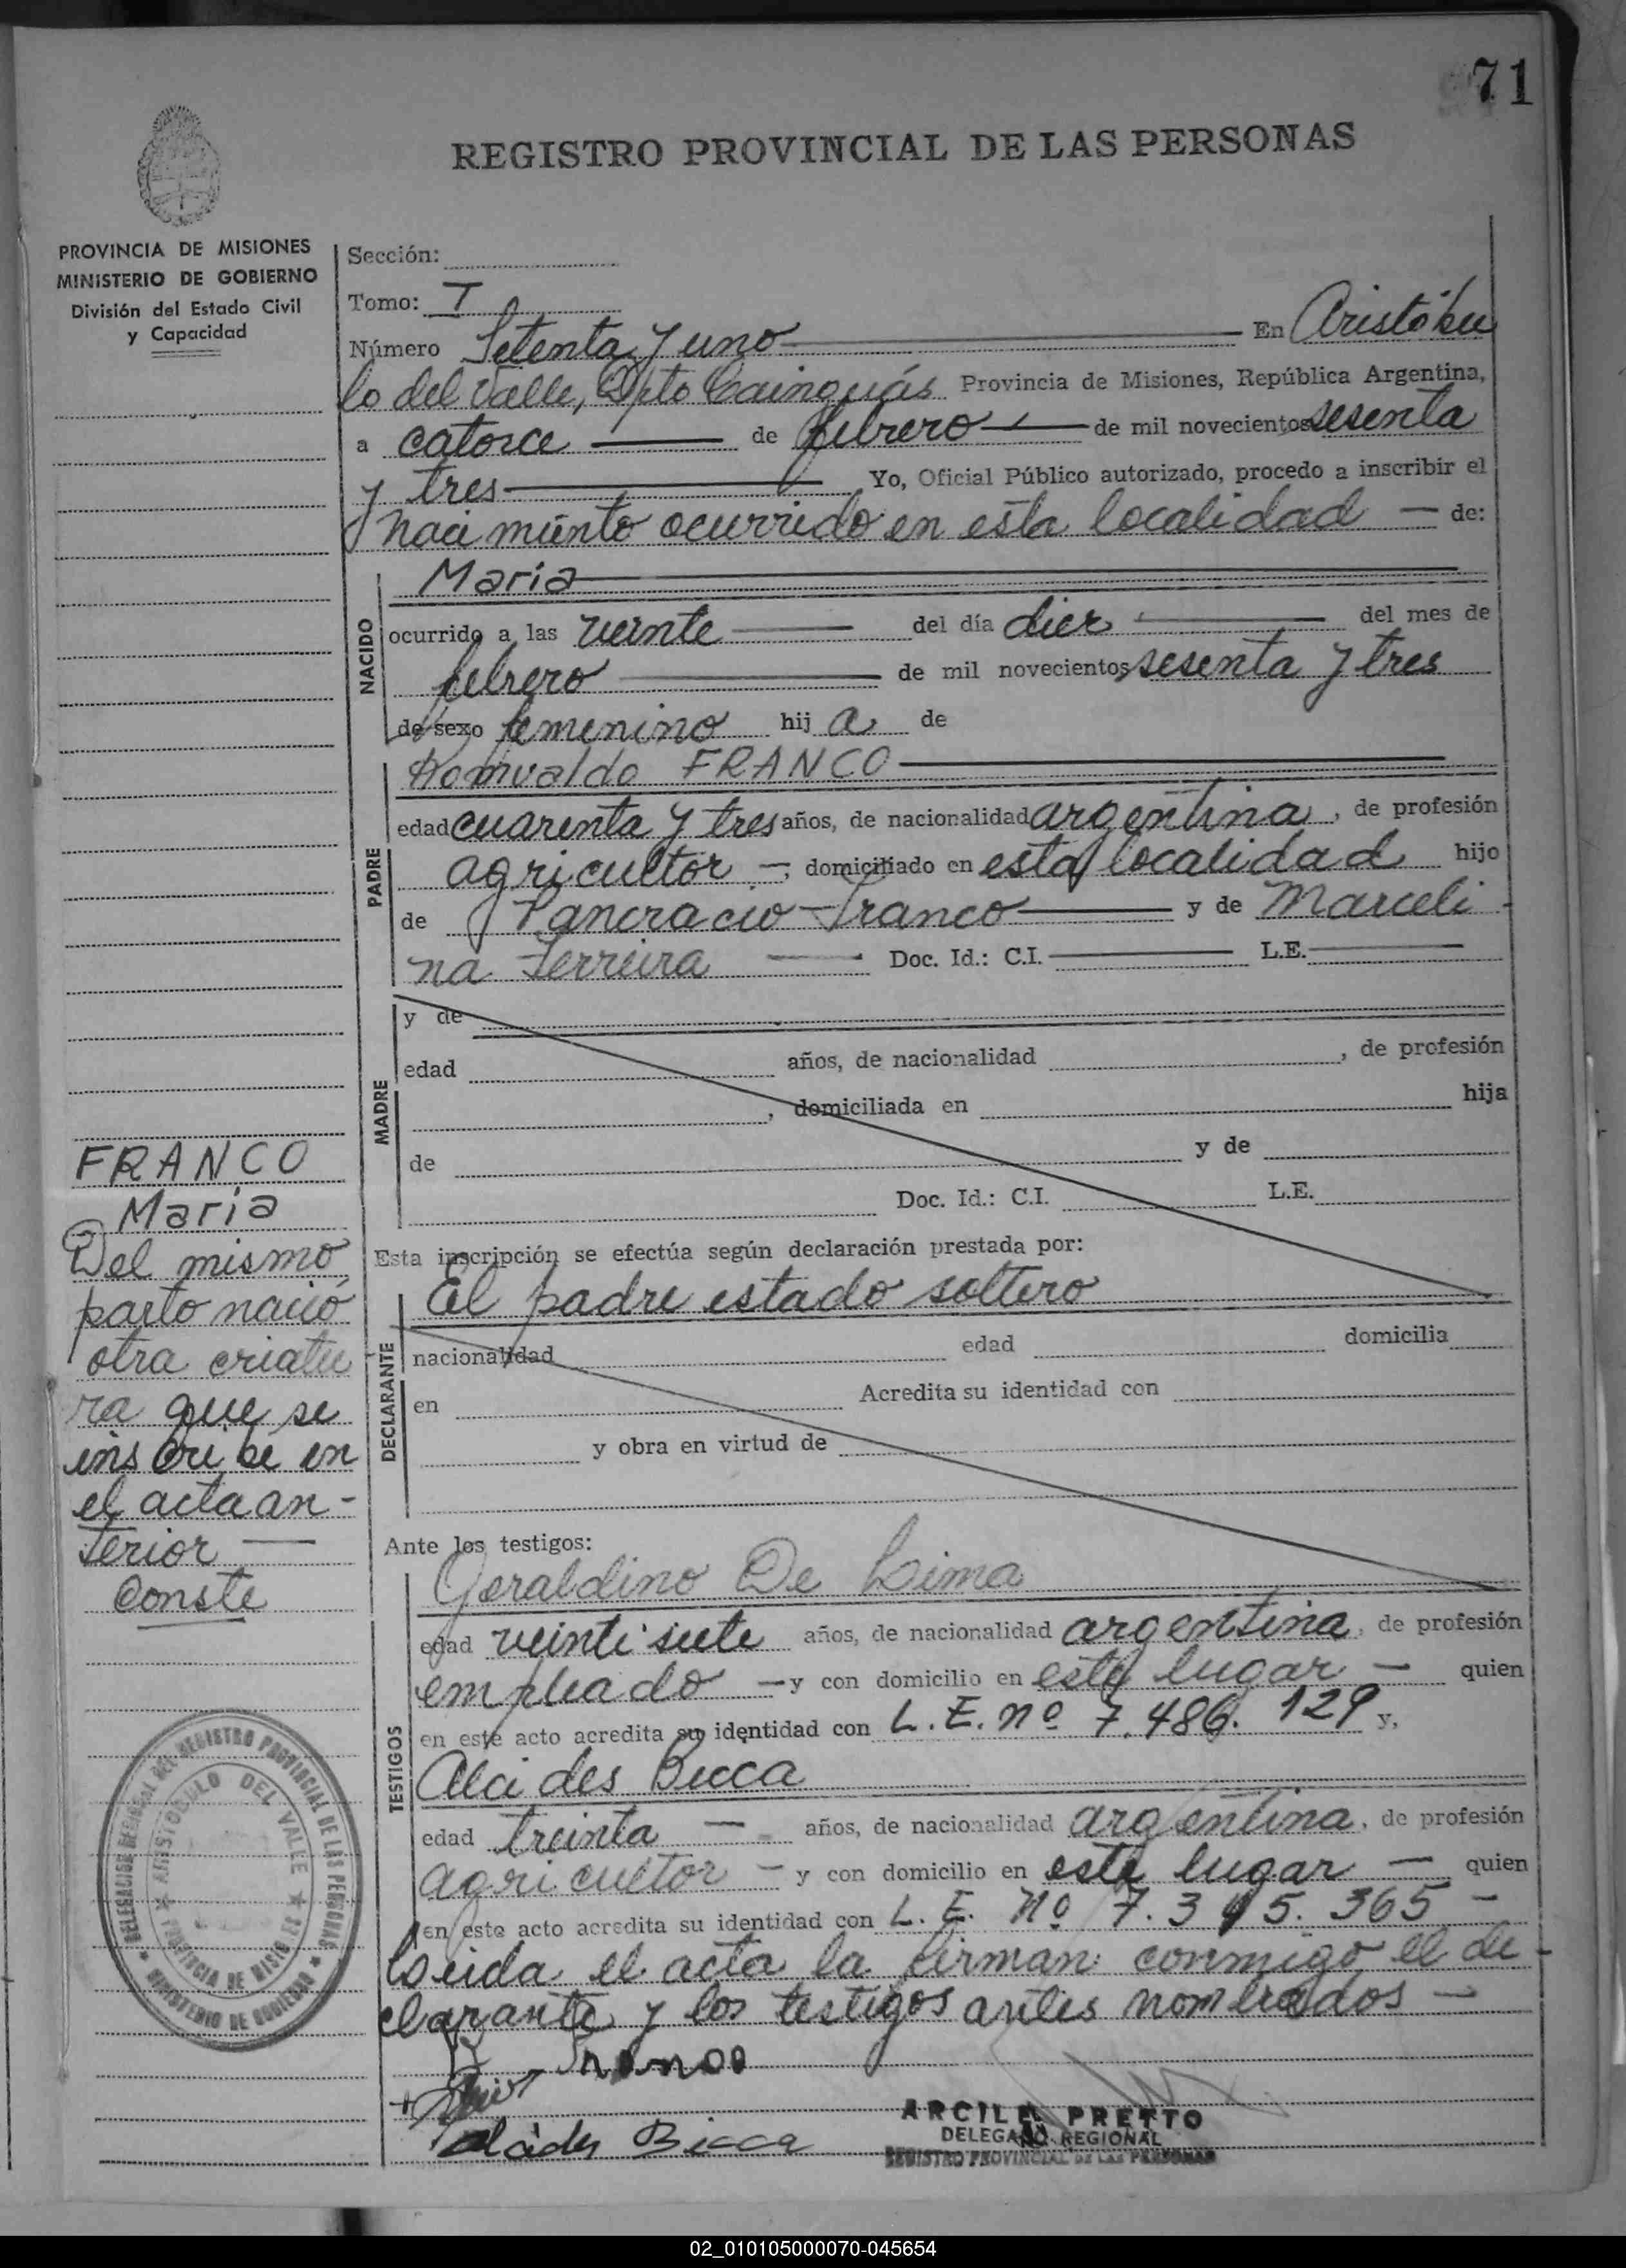 71
REGISTRO PROVINCIAL DE LAS PERSONAS
PROVINCIA DE MISIONES
MINISTERIO DE GOBIERNO
División del Estado Civil
y Capacidad
Sección:
Tomo: I
Número Setenta y uno En Aristóbu
lo del Valle, Dpto Cainguás Provincia de Misiones, República Argentina,
a catorce de febrero de mil novecientos sesenta
y tres Yo, Oficial Público autorizado, procedo a inscribir el
nacimiento ocurrido en esta localidad — de:
NACIDO
María
ocurrido a las veinte del día diez del mes de
febrero de mil novecientos sesenta y tres
de sexo femenino hij a de
PADRE
Romualdo FRANCO
edad cuarenta y tres años, de nacionalidad argentina, de profesión
agricultor —, domiciliado en esta localidad hijo
de Pancracio Franco y de Marceli
na Ferreira Doc. Id.: C.I. L.E.
MADRE
y de
edad años, de nacionalidad , de profesión
, domiciliada en hija
de y de
Doc. Id.: C.I. L.E.
Esta inscripción se efectúa según declaración prestada por:
El padre estado soltero
DECLARANTE
nacionalidad edad domicilia
en Acredita su identidad con
y obra en virtud de
Ante los testigos:
TESTIGOS
Geraldino De Lima
edad veintisiete años, de nacionalidad argentina, de profesión
empleado — y con domicilio en este lugar — quien
en este acto acredita su identidad con L.E. nº 7.486.129 y,
Alcides Bicca
edad treinta — años, de nacionalidad argentina, de profesión
agricultor — y con domicilio en este lugar — quien
en este acto acredita su identidad con L.E. Nº 7.3 5.365 -
Leida el acta la firman conmigo el de-
clarante y los testigos antes nombrados —
Franco
Alcides Bicca
ARCILE PRETTO
DELEGADO REGIONAL
REGISTRO PROVINCIAL DE LAS PERSONAS
FRANCO
María
Del mismo
parto nació
otra criatu
ra que se
inscribe en
el acta an-
terior —
Conste
DELEGACION REGIONAL DEL REGISTRO PROVINCIAL DE LAS PERSONAS
ARISTOBULO DEL VALLE
PROVINCIA DE MISIONES
MINISTERIO DE GOBIERNO
02_010105000070-045654